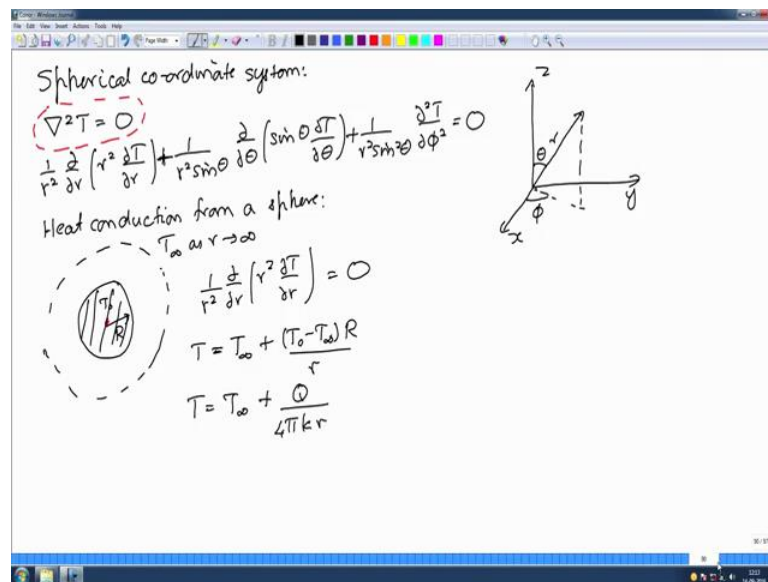 Comor - Windows Journal
File Edit View Insert Actions Tools Help
Page Width
B I
Spherical co-ordinate system:
∇²T = 0
1/r² ∂/∂r (r² ∂T/∂r) + 1/(r² sinθ) ∂/∂θ (sinθ ∂T/∂θ) + 1/(r² sin²θ) ∂²T/∂φ² = 0
z
r
θ
y
φ
x
Heat conduction from a sphere:
T∞ as r→∞
T₀
R
1/r² ∂/∂r (r² ∂T/∂r) = 0
T = T∞ + (T₀-T∞)R/r
T = T∞ + Q/(4πkr)